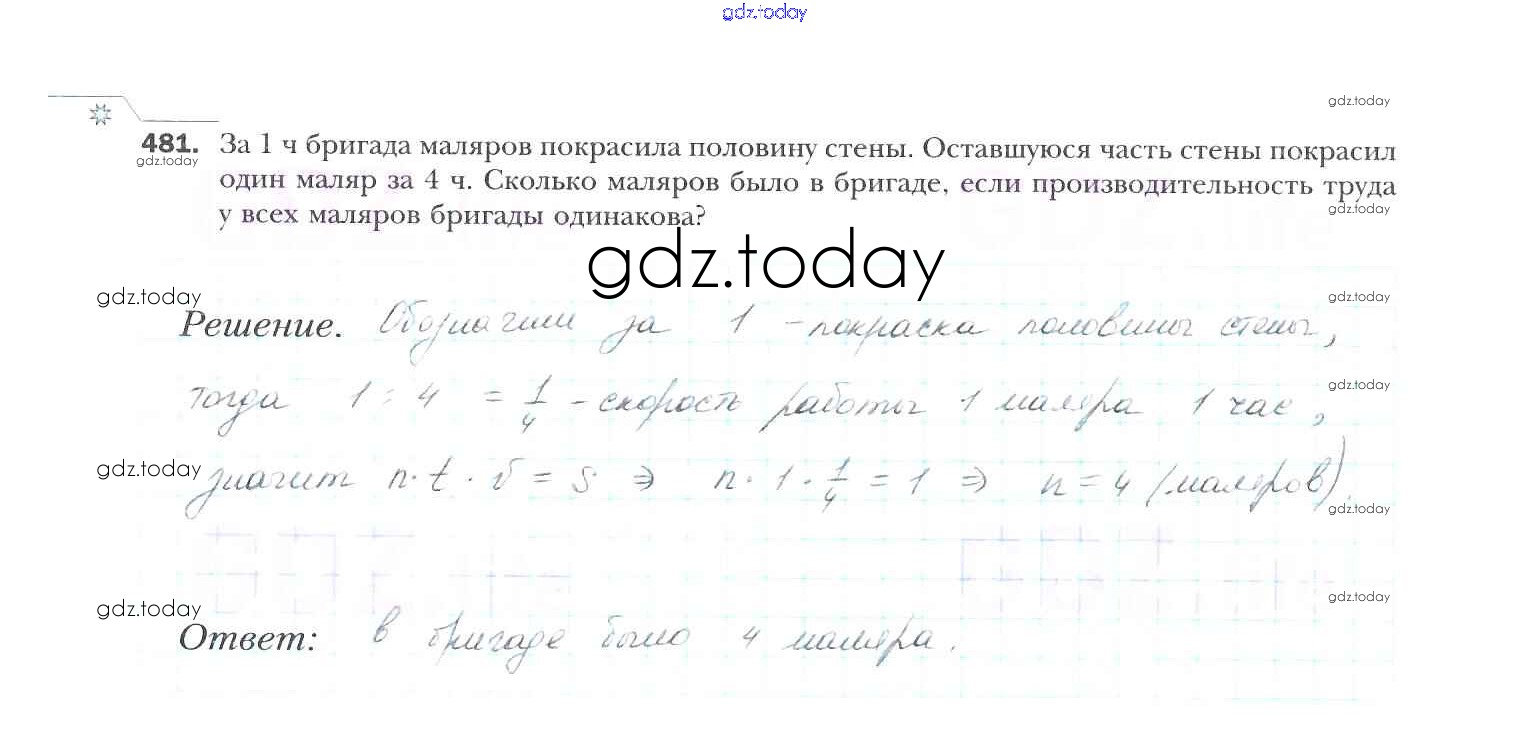 gdz.today
gdz.today
481. За 1 ч бригада маляров покрасила половину стены. Оставшуюся часть стены покрасил
gdz.today
один маляр за 4 ч. Сколько маляров было в бригаде, если производительность труда
у всех маляров бригады одинакова?
gdz.today
gdz.today
gdz.today
gdz.today
Решение. Обозначим за 1 - покраска половины стены,
тогда 1 : 4 = 1/4 - скорость работы 1 маляра 1 час,
gdz.today
gdz.today
значит n · t · v = S ⇒ n · 1 · 1/4 = 1 ⇒ n = 4 (маляров).
gdz.today
gdz.today
gdz.today
Ответ: в бригаде было 4 маляра.